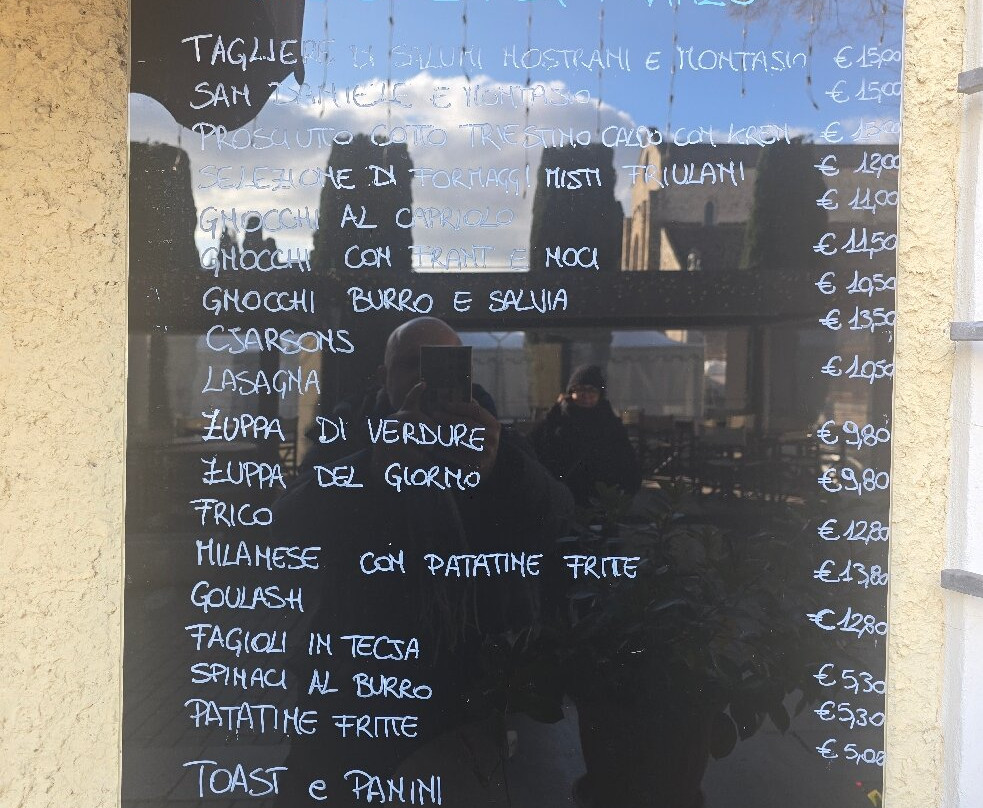 TAGLIERE DI SALUMI NOSTRANI E MONTASIO € 15,00
SAN DANIELE E MONTASIO € 15,00
PROSCIUTTO COTTO TRIESTINO CALDO CON KREN €
SELEZIONE DI FORMAGGI MISTI FRIULANI € 12,00
GNOCCHI AL CAPRIOLO € 11,00
GNOCCHI CON FRANT E NOCI € 11,50
GNOCCHI BURRO E SALVIA € 10,50
CJARSONS € 13,50
LASAGNA € 10,50
ZUPPA DI VERDURE € 9,80
ZUPPA DEL GIORNO € 9,80
FRICO € 12,80
MILANESE CON PATATINE FRITTE € 13,80
GOULASH € 12,80
FAGIOLI IN TECJA € 5,30
SPINACI AL BURRO € 5,30
PATATINE FRITTE € 5,00
TOAST e PANINI